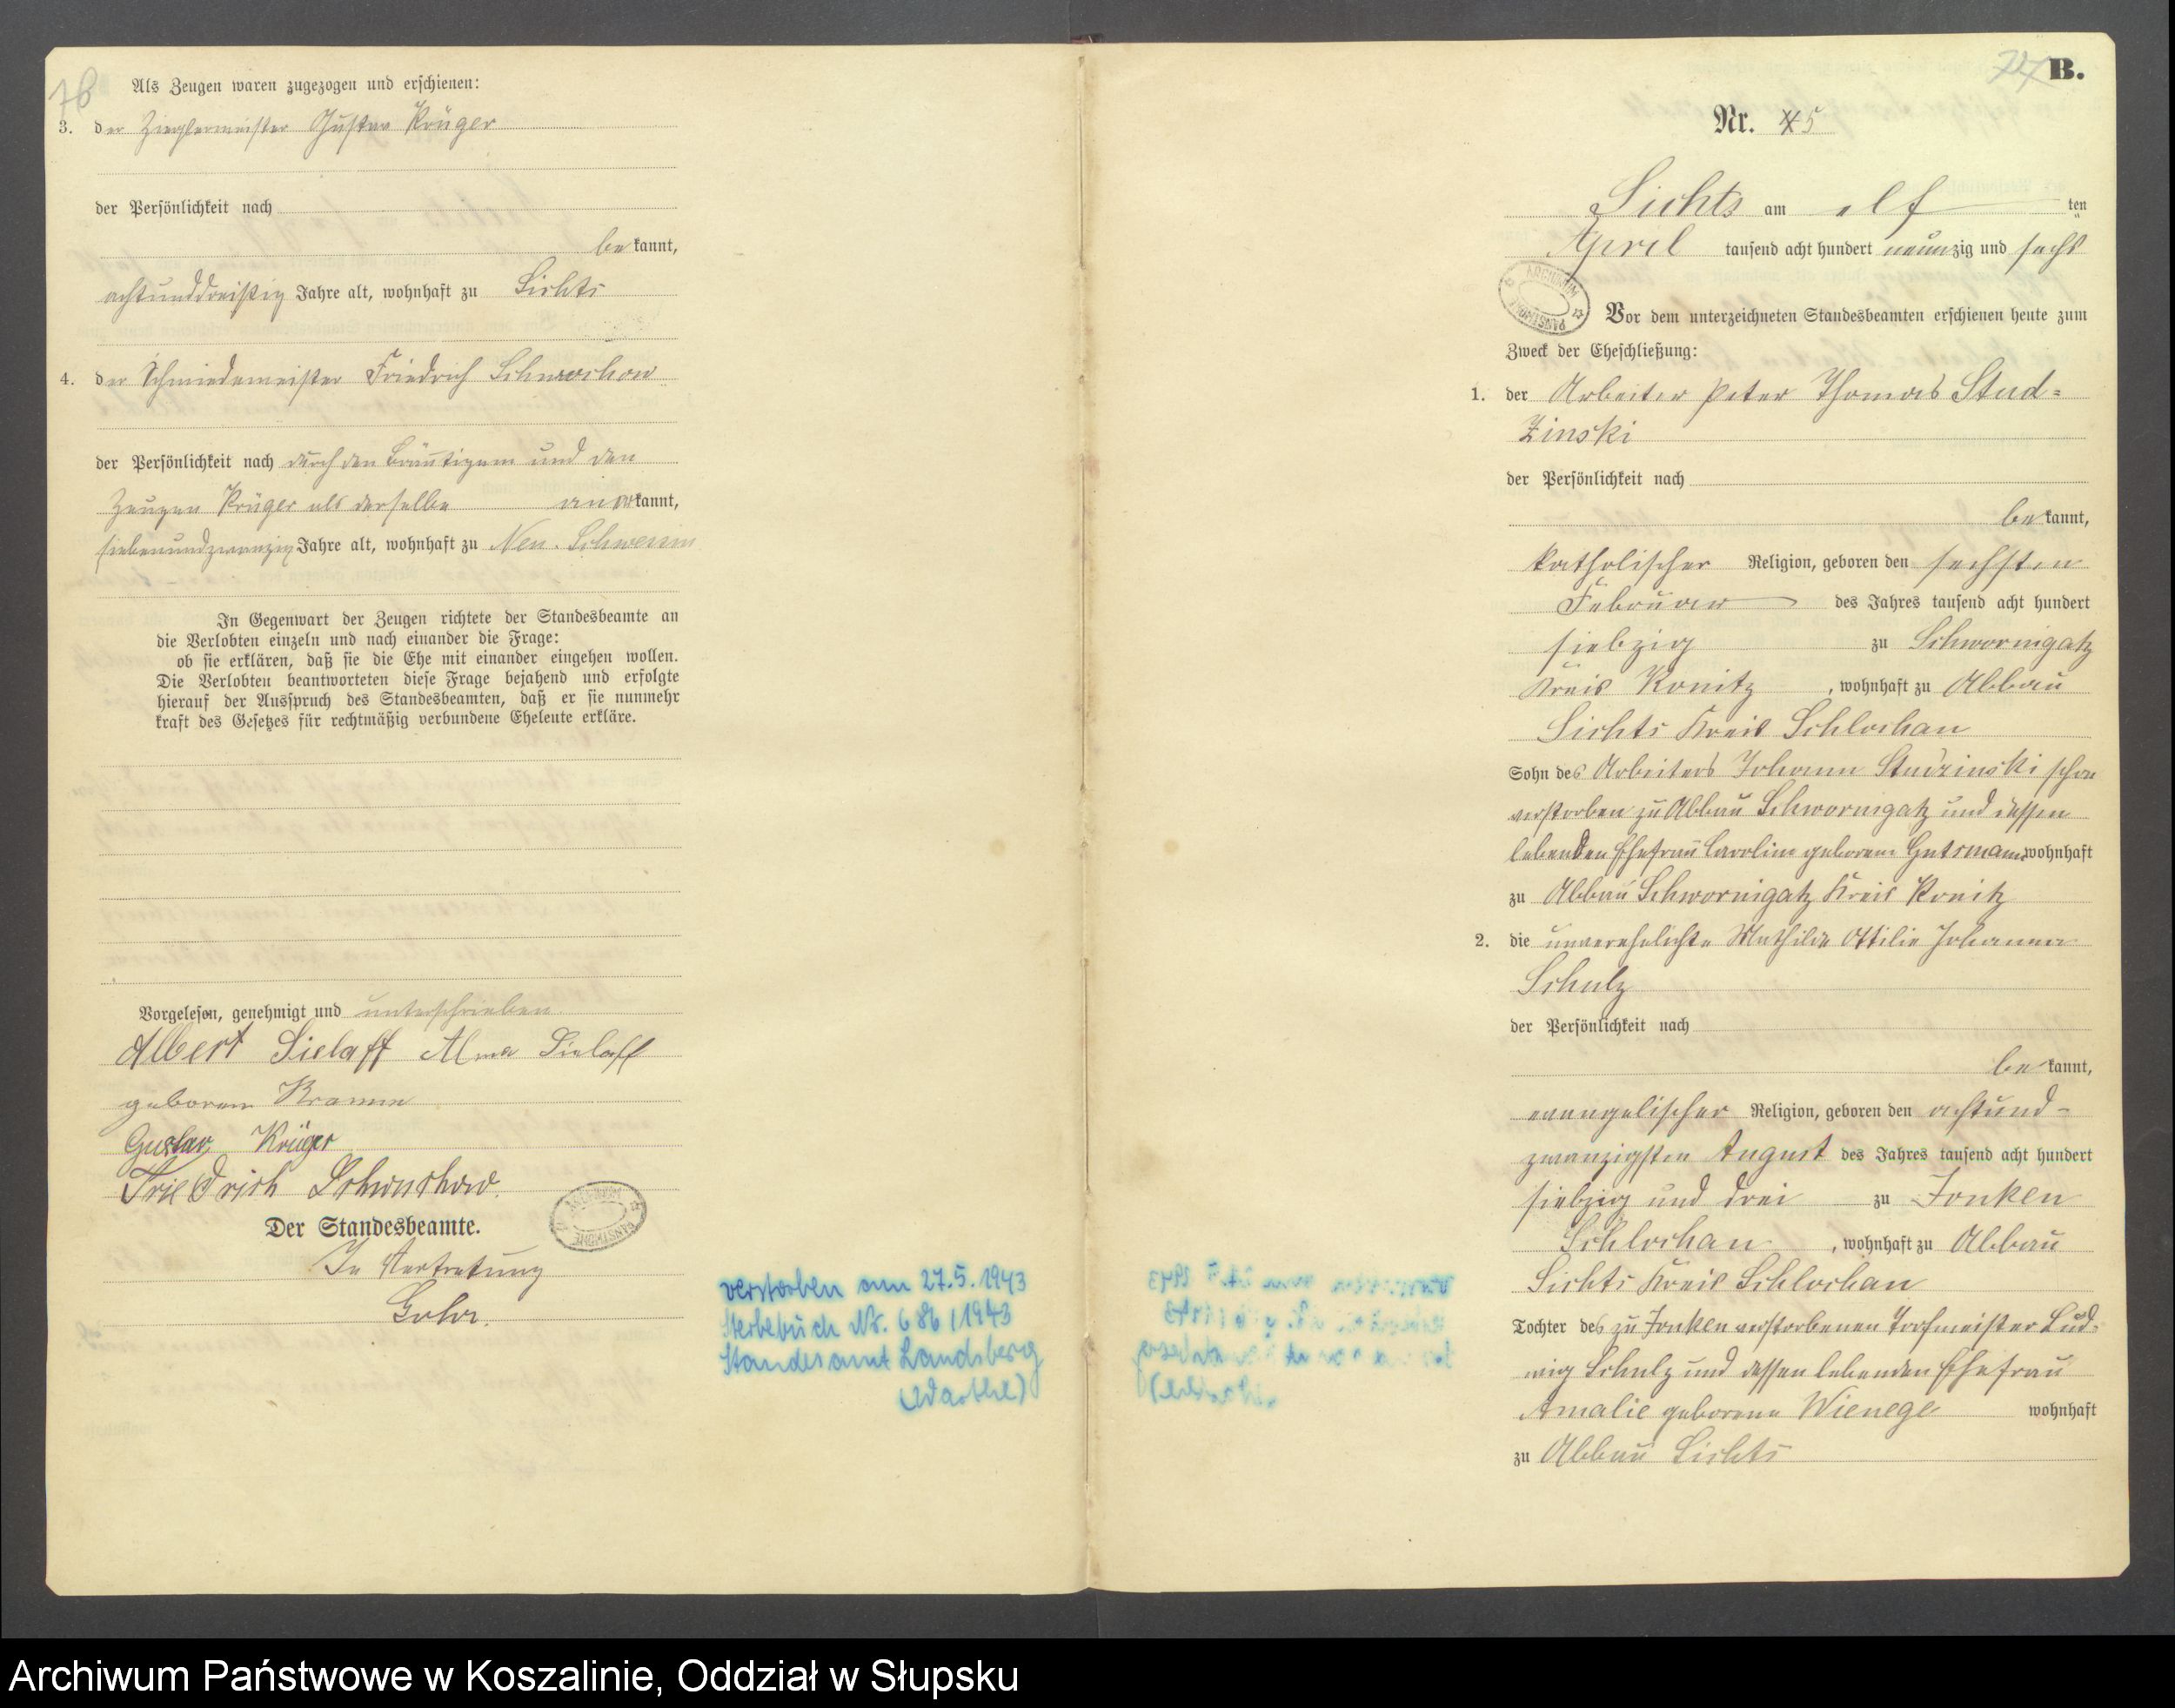 76
Als Zeugen waren zugezogen und erschienen:
3. der Zieglermeister Gustav Krüger
der Persönlichkeit nach
bekannt,
achtunddreißig Jahre alt, wohnhaft zu Sichts
4. der Schmiedemeister Friedrich Schwochow
der Persönlichkeit nach durch den Bräutigam und den
Zeugen Krüger als derselbe anerkannt,
siebenundzwanzig Jahre alt, wohnhaft zu Neu-Schwessin
In Gegenwart der Zeugen richtete der Standesbeamte an
die Verlobten einzeln und nach einander die Frage:
ob sie erklären, daß sie die Ehe mit einander eingehen wollen.
Die Verlobten beantworteten diese Frage bejahend und erfolgte
hierauf der Ausspruch des Standesbeamten, daß er sie nunmehr
kraft des Gesetzes für rechtmäßig verbundene Eheleute erkläre.
Vorgelesen, genehmigt und unterschrieben
Albert Sielaff Alma Sielaff
geborene Kramm
Gustav Krüger
Friedrich Schwochow.
Der Standesbeamte.
In Vertretung
Gohr.
verstorben am 27.5.1943
Sterbebuch Nr. 686/1943
Standesamt Landsberg
(Warthe)
B.
Nr. 5
Sichts am elf ten
April tausend acht hundert neunzig und sechs
Vor dem unterzeichneten Standesbeamten erschienen heute zum
Zweck der Eheschließung:
1. der Arbeiter Peter Thomas Stud-
zinski
der Persönlichkeit nach
bekannt,
katholischer Religion, geboren den sechsten
Februar des Jahres tausend acht hundert
siebzig zu Schwornigatz
Kreis Konitz, wohnhaft zu Abbau
Sichts Kreis Schlochau
Sohn des Arbeiters Johann Studzinski schon
verstorben zu Abbau Schwornigatz und dessen
lebenden Ehefrau Caroline geborene Gutsmann wohnhaft
zu Abbau Schwornigatz Kreis Konitz
2. die unverehelichte Mathilde Ottilie Johanna
Schulz
der Persönlichkeit nach
bekannt,
evangelischer Religion, geboren den achtund-
zwanzigsten August des Jahres tausend acht hundert
siebzig und drei zu Jonken
Schlochau, wohnhaft zu Abbau
Sichts Kreis Schlochau
Tochter des zu Jonken verstorbenen Torfmeister Lud-
wig Schulz und dessen lebenden Ehefrau
Amalie geborene Wienege wohnhaft
zu Abbau Sichts
Archiwum Państwowe w Koszalinie, Oddział w Słupsku